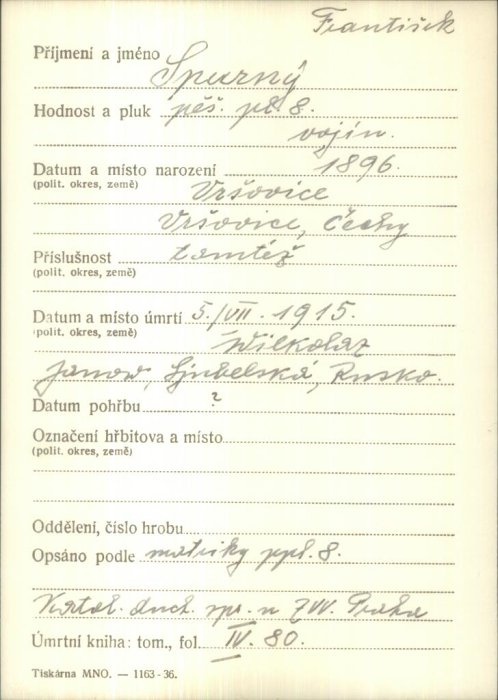 František
Příjmení a jméno Spurný
Hodnost a pluk pěš. pl. 8.
vojín.
Datum a místo narození 1896.
(polit. okres, země) Vršovice
Vršovice, Čechy
Příslušnost tamtéž
(polit. okres, země)
Datum a místo úmrtí 5./VII. 1915.
(polit. okres, země) Wilkolaz
Janow, Ljubelská, Rusko.
Datum pohřbu ?
Označení hřbitova a místo
(polit. okres, země)
Oddělení, číslo hrobu
Opsáno podle matriky ppl. 8.
Katol. duch. spr. u ZVV. Praha
Úmrtní kniha: tom., fol. IV. 80.
Tiskárna MNO. — 1163-36.